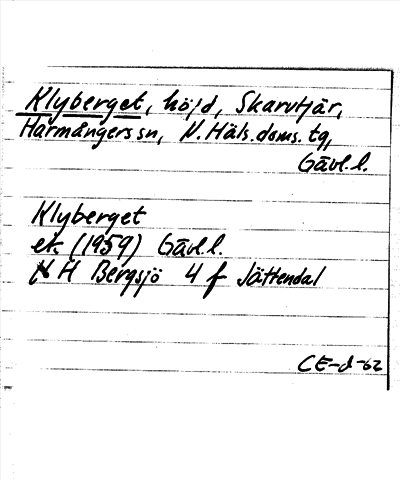 Klyberget, höjd, Skarvtjär,
Harmångers sn, N. Häls. doms. tg,
Gävl. l.
Klyberget
ek (1959) Gävl. l.
H Bergsjö 4 f Jättendal
CE-d-62